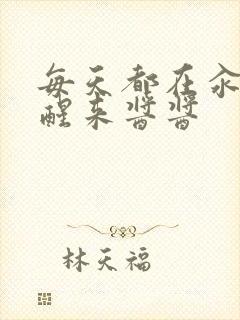 每天都在汆
醒来酱酱
林天福